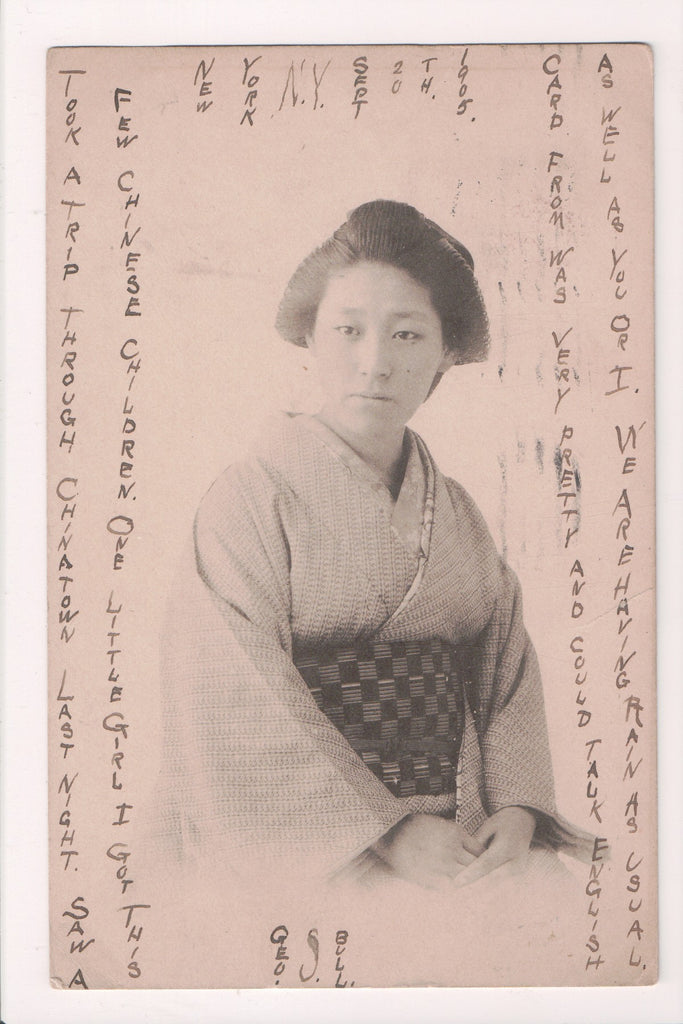 NEW YORK, N.Y. SEPT 20TH. 1905.
TOOK A TRIP THROUGH CHINATOWN LAST NIGHT. SAW A
FEW CHINESE CHILDREN. ONE LITTLE GIRL I GOT THIS
CARD FROM WAS VERY PRETTY AND COULD TALK ENGLISH
AS WELL AS YOU OR I. WE ARE HAVING RAIN AS USUAL.
GEO. S. BULL.